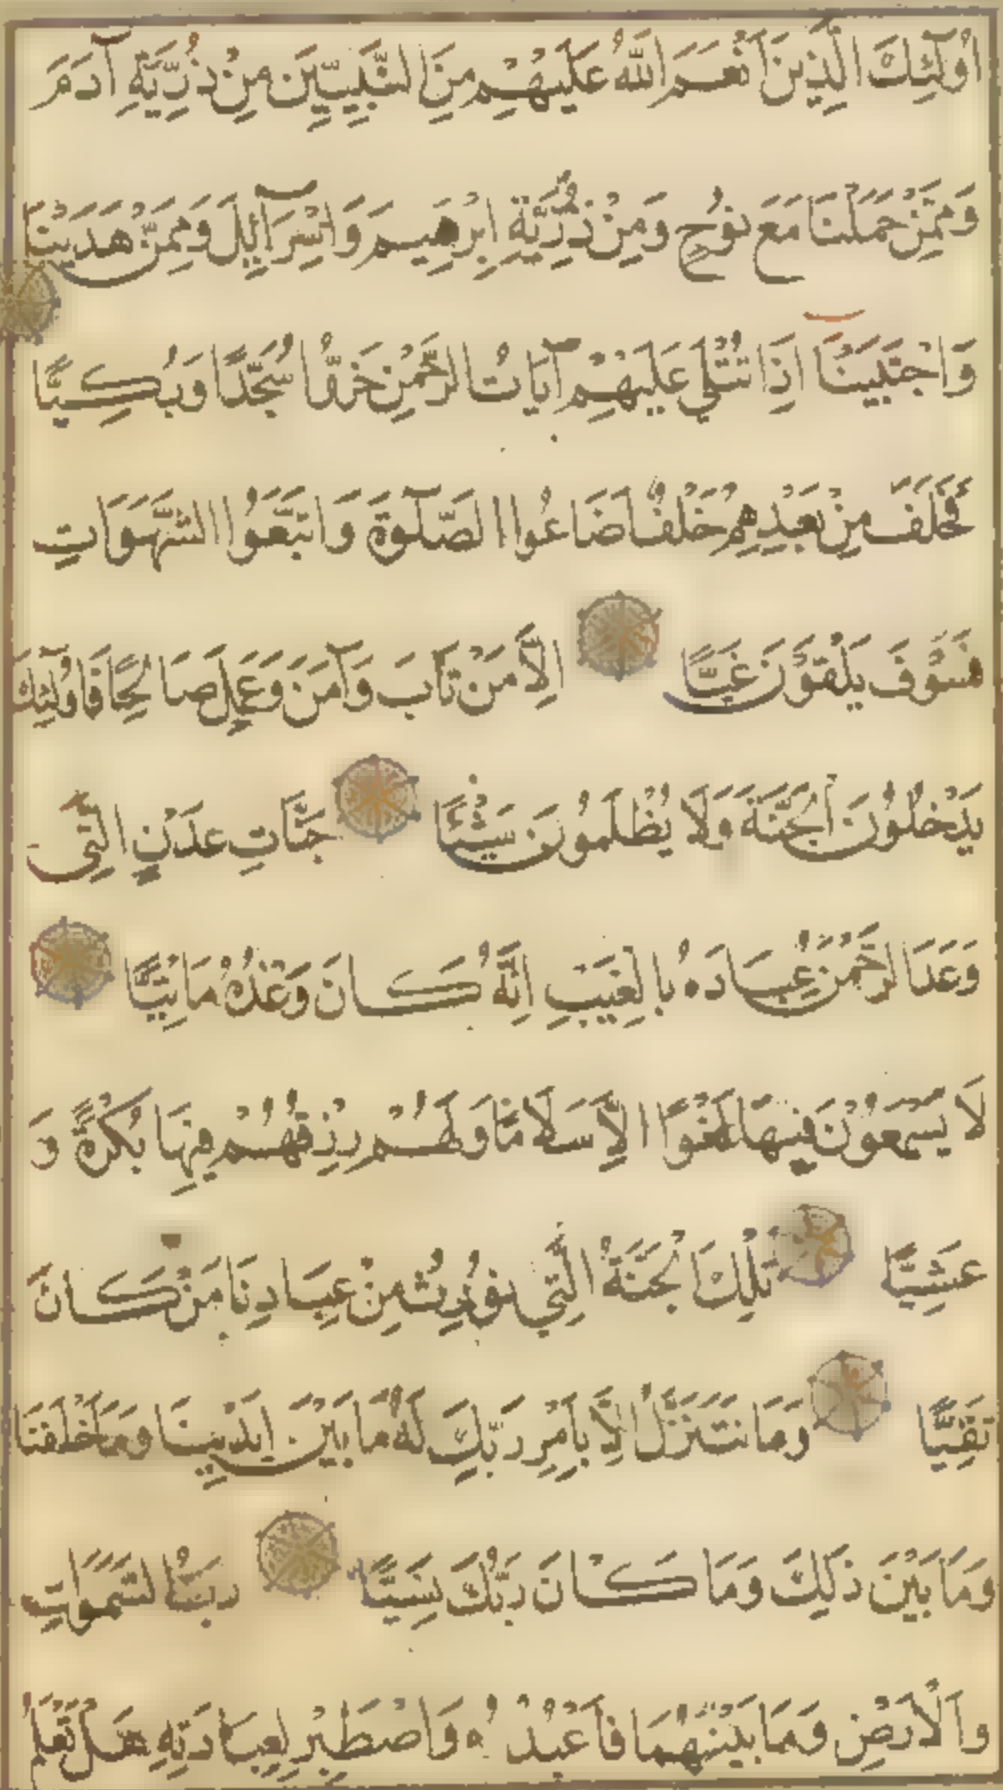 اُولٰٓئِكَ الَّذِينَ اَنْعَمَ اللّٰهُ عَلَيْهِمْ مِنَ النَّبِيِّينَ مِنْ ذُرِّيَّةِ آدَمَ
وَمِمَّنْ حَمَلْنَا مَعَ نُوحٍ وَمِنْ ذُرِّيَّةِ اِبْرٰهِيمَ وَاِسْرَآئِيلَ وَمِمَّنْ هَدَيْنَا
وَاجْتَبَيْنَا اِذَا تُتْلٰى عَلَيْهِمْ آيَاتُ الرَّحْمٰنِ خَرُّوا سُجَّدًا وَبُكِيًّا
فَخَلَفَ مِنْ بَعْدِهِمْ خَلْفٌ اَضَاعُوا الصَّلٰوةَ وَاتَّبَعُوا الشَّهَوَاتِ
فَسَوْفَ يَلْقَوْنَ غَيًّا اِلَّا مَنْ تَابَ وَآمَنَ وَعَمِلَ صَالِحًا فَاُولٰٓئِكَ
يَدْخُلُونَ الْجَنَّةَ وَلَا يُظْلَمُونَ شَيْئًا جَنَّاتِ عَدْنٍ الَّتِى
وَعَدَ الرَّحْمٰنُ عِبَادَهُ بِالْغَيْبِ اِنَّهُ كَانَ وَعْدُهُ مَاْتِيًّا
لَا يَسْمَعُونَ فِيهَا لَغْوًا اِلَّا سَلَامًا وَلَهُمْ رِزْقُهُمْ فِيهَا بُكْرَةً وَ
عَشِيًّا تِلْكَ الْجَنَّةُ الَّتِي نُورِثُ مِنْ عِبَادِنَا مَنْ كَانَ
تَقِيًّا وَمَا نَتَنَزَّلُ اِلَّا بِاَمْرِ رَبِّكَ لَهُ مَا بَيْنَ اَيْدِينَا وَمَا خَلْفَنَا
وَمَا بَيْنَ ذٰلِكَ وَمَا كَانَ رَبُّكَ نَسِيًّا رَبُّ السَّمٰوَاتِ
وَالْاَرْضِ وَمَا بَيْنَهُمَا فَاعْبُدْهُ وَاصْطَبِرْ لِعِبَادَتِهِ هَلْ تَعْلَمُ